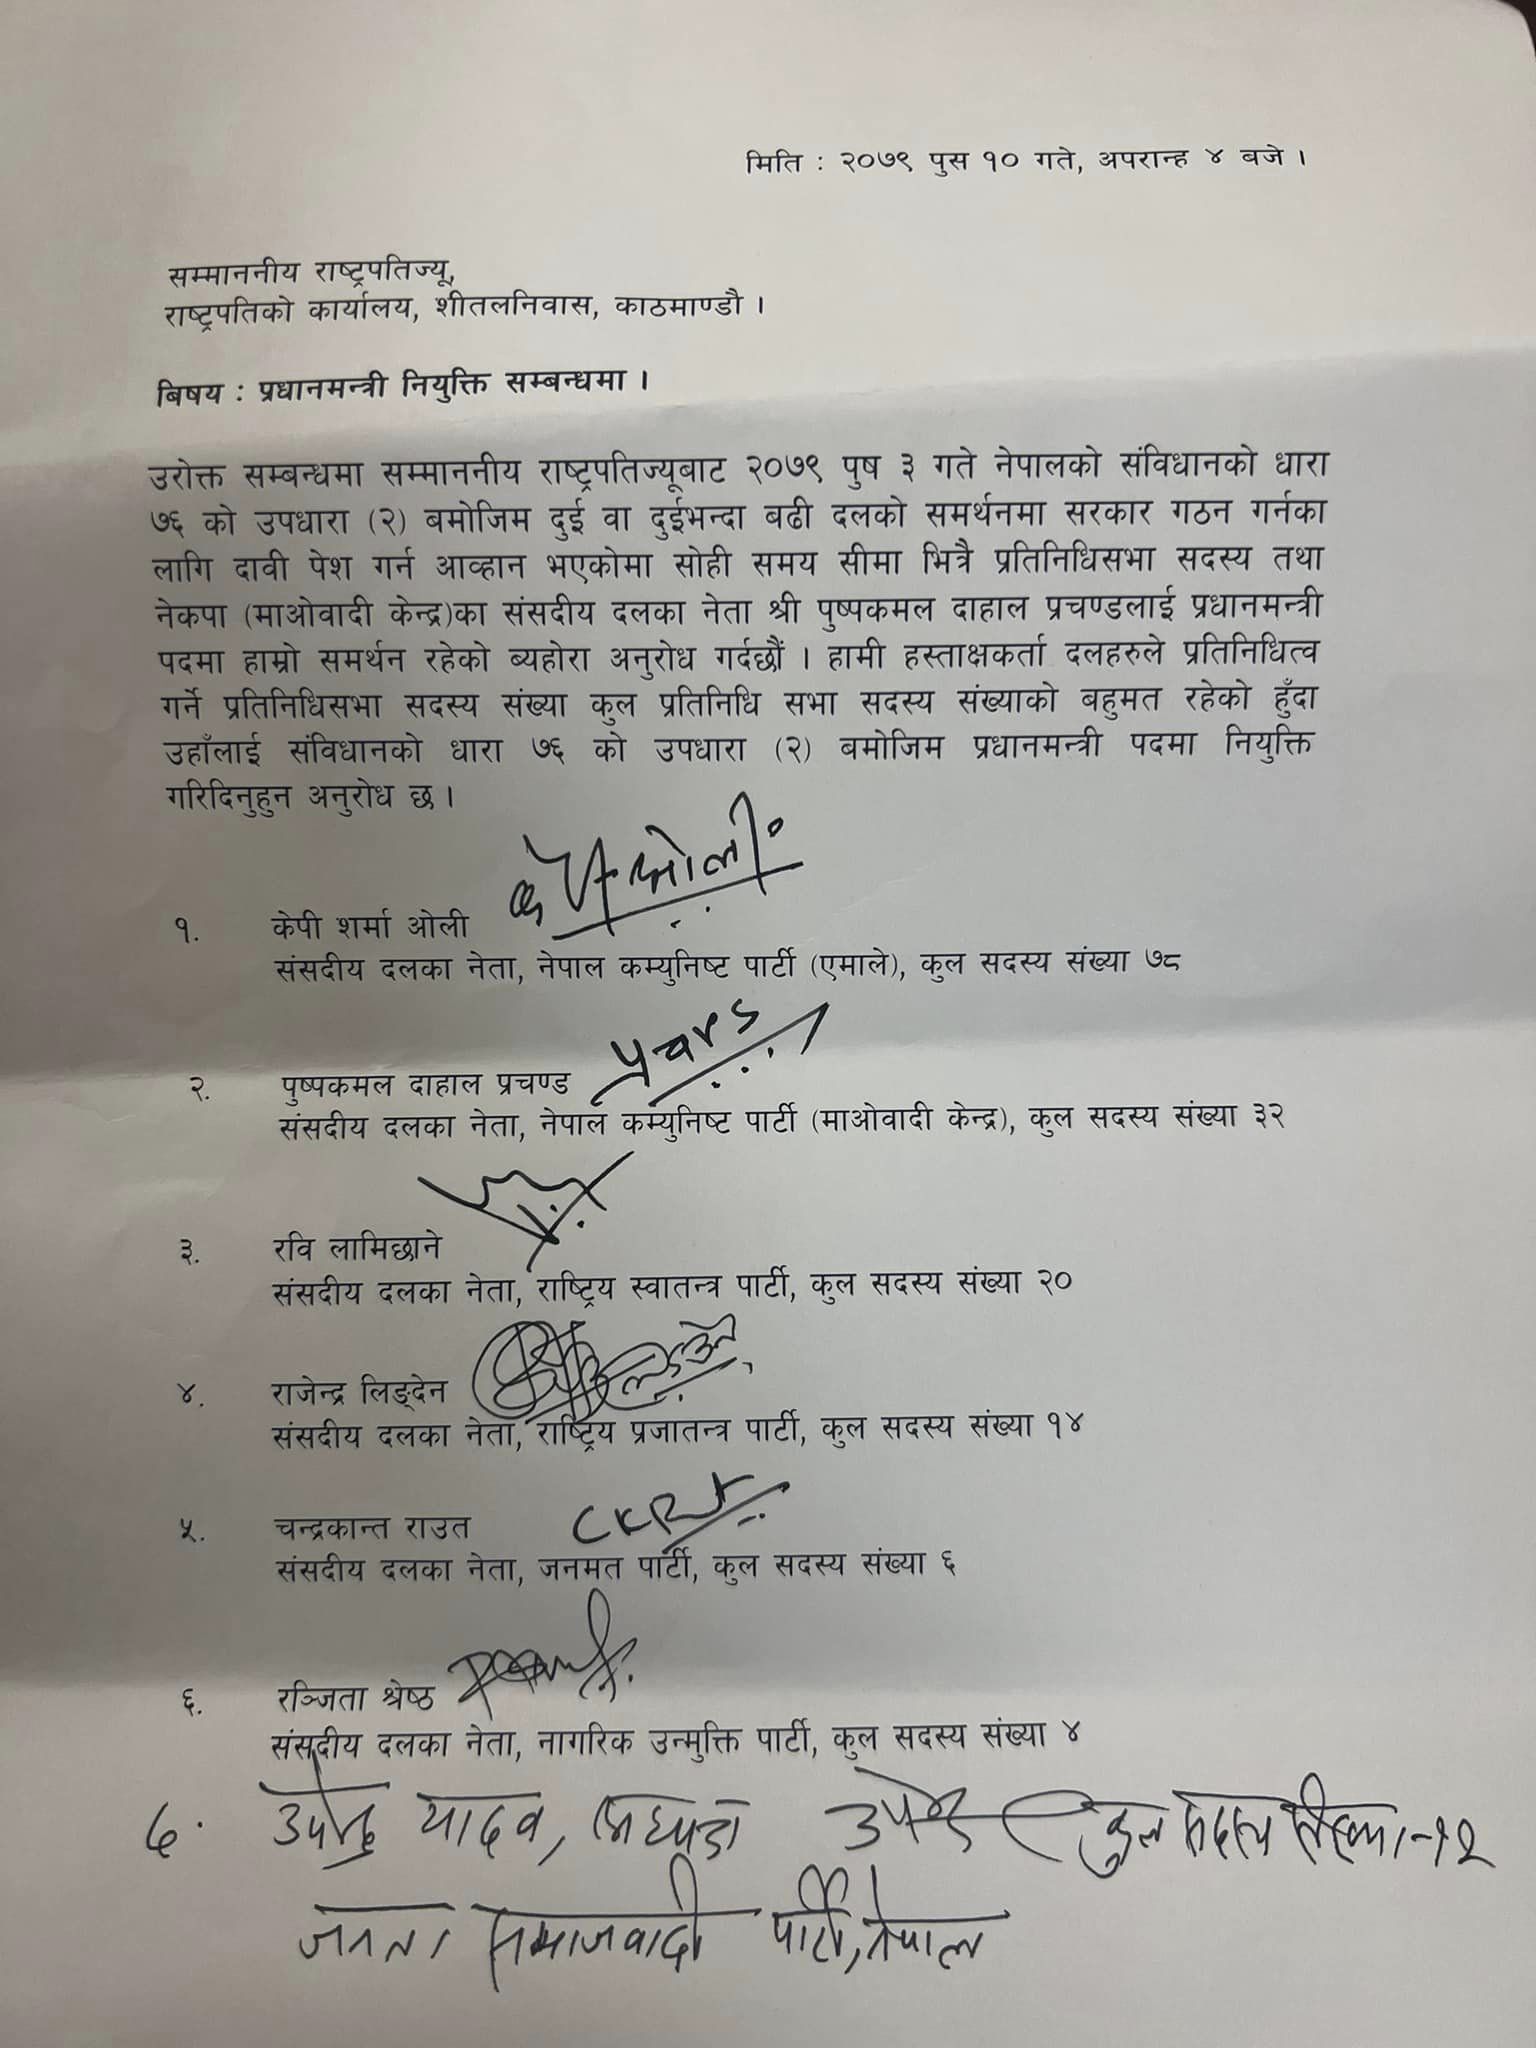 मिति : २०७९ पुस १० गते, अपरान्ह ४ बजे ।
सम्माननीय राष्ट्रपतिज्यू,
राष्ट्रपतिको कार्यालय, शीतलनिवास, काठमाण्डौ ।
बिषय : प्रधानमन्त्री नियुक्ति सम्बन्धमा ।
उरोक्त सम्बन्धमा सम्माननीय राष्ट्रपतिज्यूबाट २०७९ पुष ३ गते नेपालको संविधानको धारा
७६ को उपधारा (२) बमोजिम दुई वा दुईभन्दा बढी दलको समर्थनमा सरकार गठन गर्नका
लागि दावी पेश गर्न आव्हान भएकोमा सोही समय सीमा भित्रै प्रतिनिधिसभा सदस्य तथा
नेकपा (माओवादी केन्द्र)का संसदीय दलका नेता श्री पुष्पकमल दाहाल प्रचण्डलाई प्रधानमन्त्री
पदमा हाम्रो समर्थन रहेको ब्यहोरा अनुरोध गर्दछौं । हामी हस्ताक्षकर्ता दलहरुले प्रतिनिधित्व
गर्ने प्रतिनिधिसभा सदस्य संख्या कुल प्रतिनिधि सभा सदस्य संख्याको बहुमत रहेको हुँदा
उहाँलाई संविधानको धारा ७६ को उपधारा (२) बमोजिम प्रधानमन्त्री पदमा नियुक्ति
गरिदिनुहुन अनुरोध छ ।
के पी ओली
१. केपी शर्मा ओली
संसदीय दलका नेता, नेपाल कम्युनिष्ट पार्टी (एमाले), कुल सदस्य संख्या ७८
प्रचण्ड
२. पुष्पकमल दाहाल प्रचण्ड
संसदीय दलका नेता, नेपाल कम्युनिष्ट पार्टी (माओवादी केन्द्र), कुल सदस्य संख्या ३२
३. रवि लामिछाने
संसदीय दलका नेता, राष्ट्रिय स्वातन्त्र पार्टी, कुल सदस्य संख्या २०
४. राजेन्द्र लिङ्देन
संसदीय दलका नेता, राष्ट्रिय प्रजातन्त्र पार्टी, कुल सदस्य संख्या १४
५. चन्द्रकान्त राउत
संसदीय दलका नेता, जनमत पार्टी, कुल सदस्य संख्या ६
६. रञ्जिता श्रेष्ठ
संसदीय दलका नेता, नागरिक उन्मुक्ति पार्टी, कुल सदस्य संख्या ४
७. उपेन्द्र यादव, कुल सदस्य संख्या-१२
जनता समाजवादी पार्टी, नेपाल